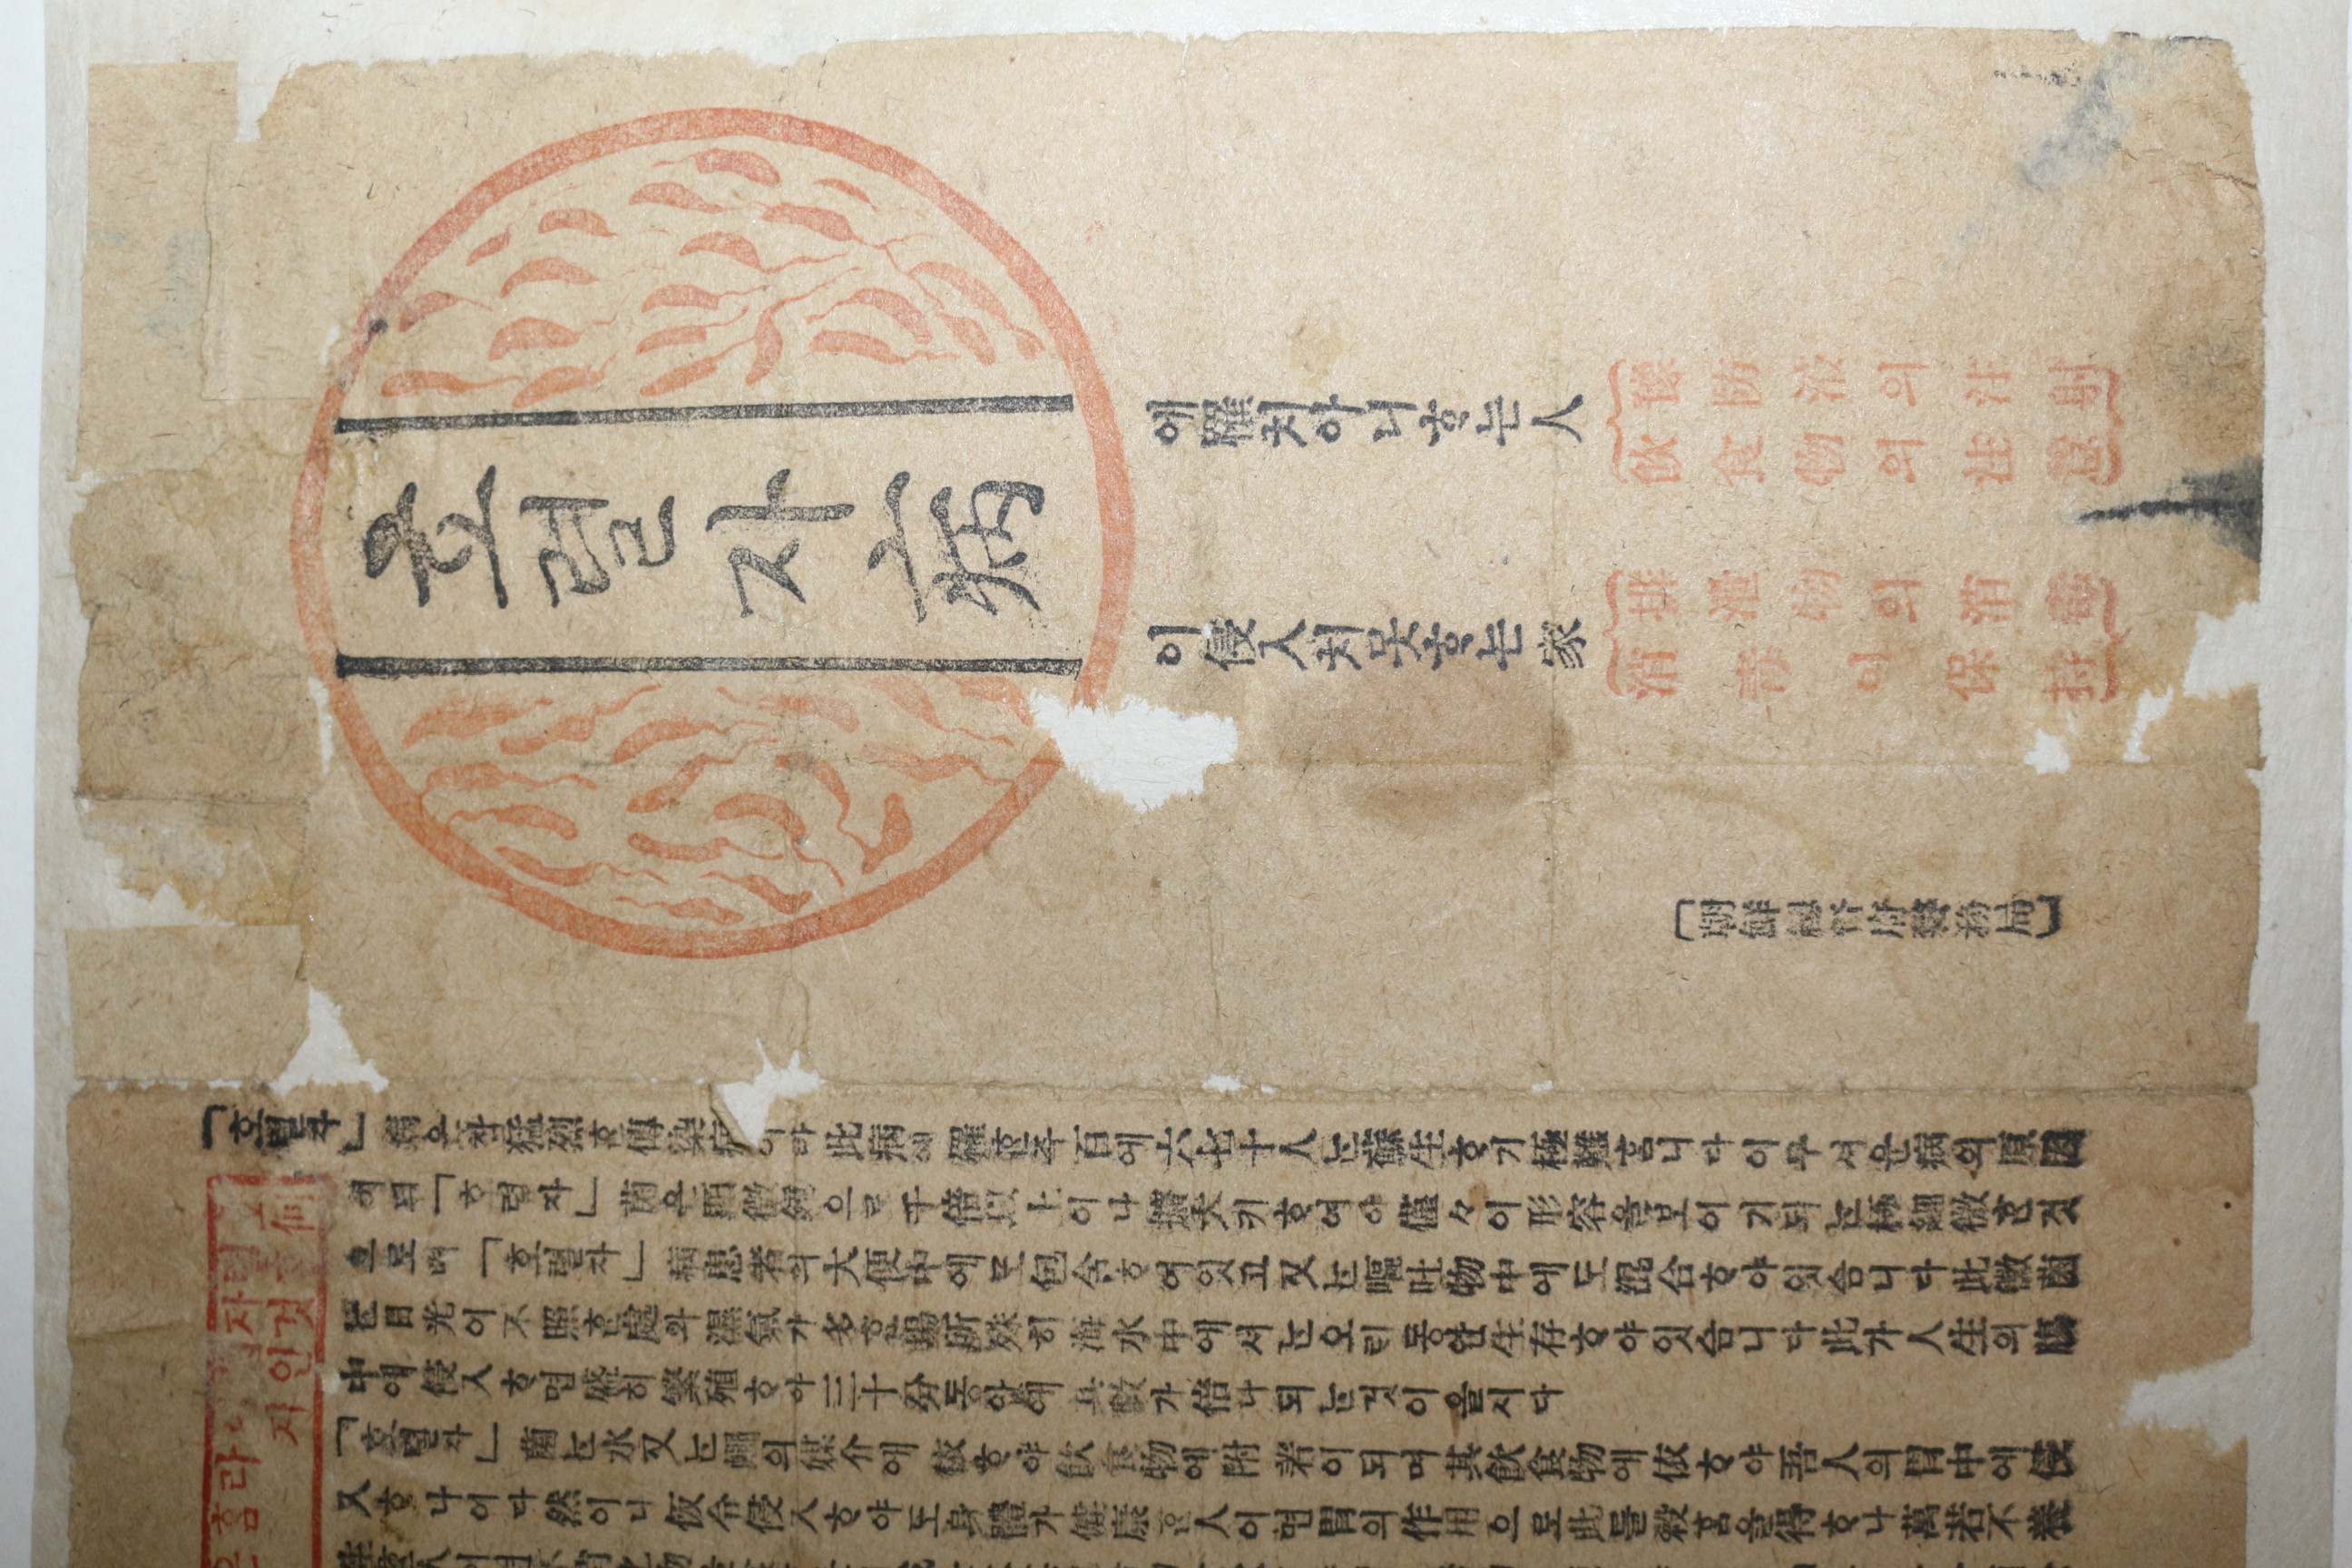 호렬자病
에罹치아니ᄒᆞᄂᆞᆫ人
이侵入치못ᄒᆞᄂᆞᆫ家
豫防液의注射
飮食物의注意
排泄物의消毒
保持
〔朝鮮總督府警務局〕
「호렬자」病은참猛烈ᄒᆞᆫ傳染病이라此病에罹ᄒᆞᆫ者百에六七十人은蘇生ᄒᆞ기極難ᄒᆞᆷ니다이무서운病의原因
되「호렬자」菌은顯微鏡으로千倍以上이나擴大ᄒᆞ여야僅々이形容을보이기되ᄂᆞᆫ極細微ᄒᆞᆫ것
으로「호렬자」病患者의大便中에도包含ᄒᆞ여잇고又ᄂᆞᆫ嘔吐物中에도混合ᄒᆞ야잇슴니다此黴菌
은日光이不照ᄒᆞᆫ處와濕氣가多ᄒᆞᆫ場所殊히海水中에서ᄂᆞᆫ오ᄅᆡ동안生存ᄒᆞ야잇슴니다此가人生의腸
中에侵入ᄒᆞ면盛히繁殖ᄒᆞ야三十分동안에其數가倍나되ᄂᆞᆫ것이올시다
「호렬자」菌은水又ᄂᆞᆫ蠅의媒介에依ᄒᆞ야飮食物에附着이되며其飮食物에依ᄒᆞ야吾人의胃中에侵
入ᄒᆞ나이다然이나假令侵入ᄒᆞ야도身體가健康ᄒᆞᆫ人이면胃의作用으로此를殺홈을得ᄒᆞ나萬若不養